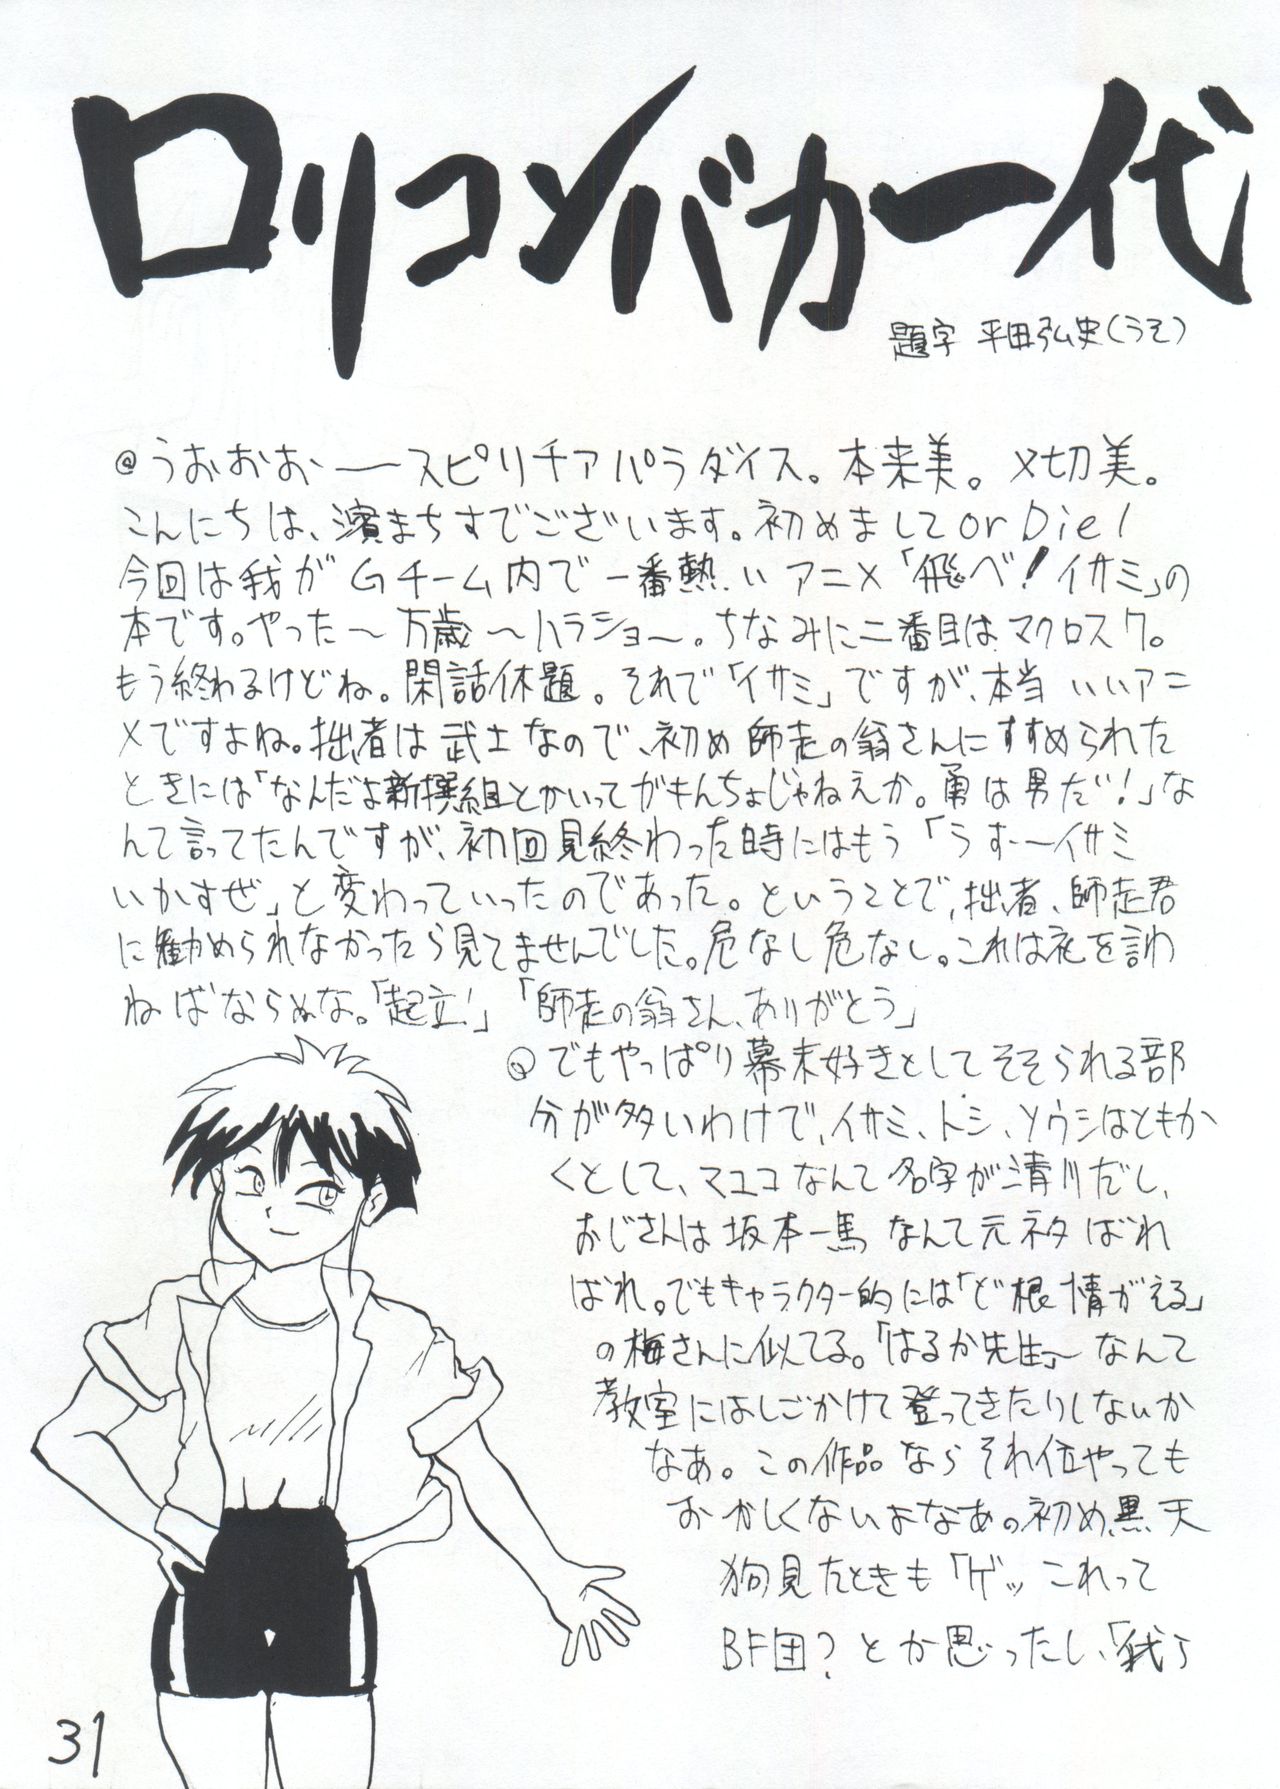 ロリコンバカ一代
題字 平田弘史(うそ)
@うおおおーースピリチアパラダイス。本来美。〆切美。
こんにちは、濱まちすでございます。初めましてor Die!
今回は我がGチーム内で一番熱いアニメ「飛べ!イサミ」の
本です。やった〜万歳〜ハラショ〜。ちなみに二番目はマクロス7。
もう終わるけどね。閑話休題。それで「イサミ」ですが、本当いいアニ
メですよね。拙者は武士なので、初め師走の翁さんにすすめられた
ときには「なんだよ新撰組とかいってがきんちょじゃねえか。勇は男だ!」な
んて言ってたんですが、初回見終わった時にはもう「うすーーイサミ
いかすぜ」と変わっていったのであった。ということで、拙者、師走君
に勧められなかったら見てませんでした。危なし危なし。これは礼を言わ
ねばならぬな。「起立!」「師走の翁さん、ありがとう」
@でもやっぱり幕末好きとしてそそられる部
分が多いわけで、イサミ、トシ、ソウシはともか
くとして、マユコなんて名字が清川だし、
おじさんは坂本一馬なんて元ネタばれ
ばれ。でもキャラクター的には「ど根情がえる」
の梅さんに似てる。「はるか先生」〜なんて
教室にはしごかけて登ってきたりしないか
なあ。この作品ならそれ位やっても
おかしくないよなあ。初め、黒天
狗見たときも「ゲッこれって
BF団?とか思ったし、「我ら
31